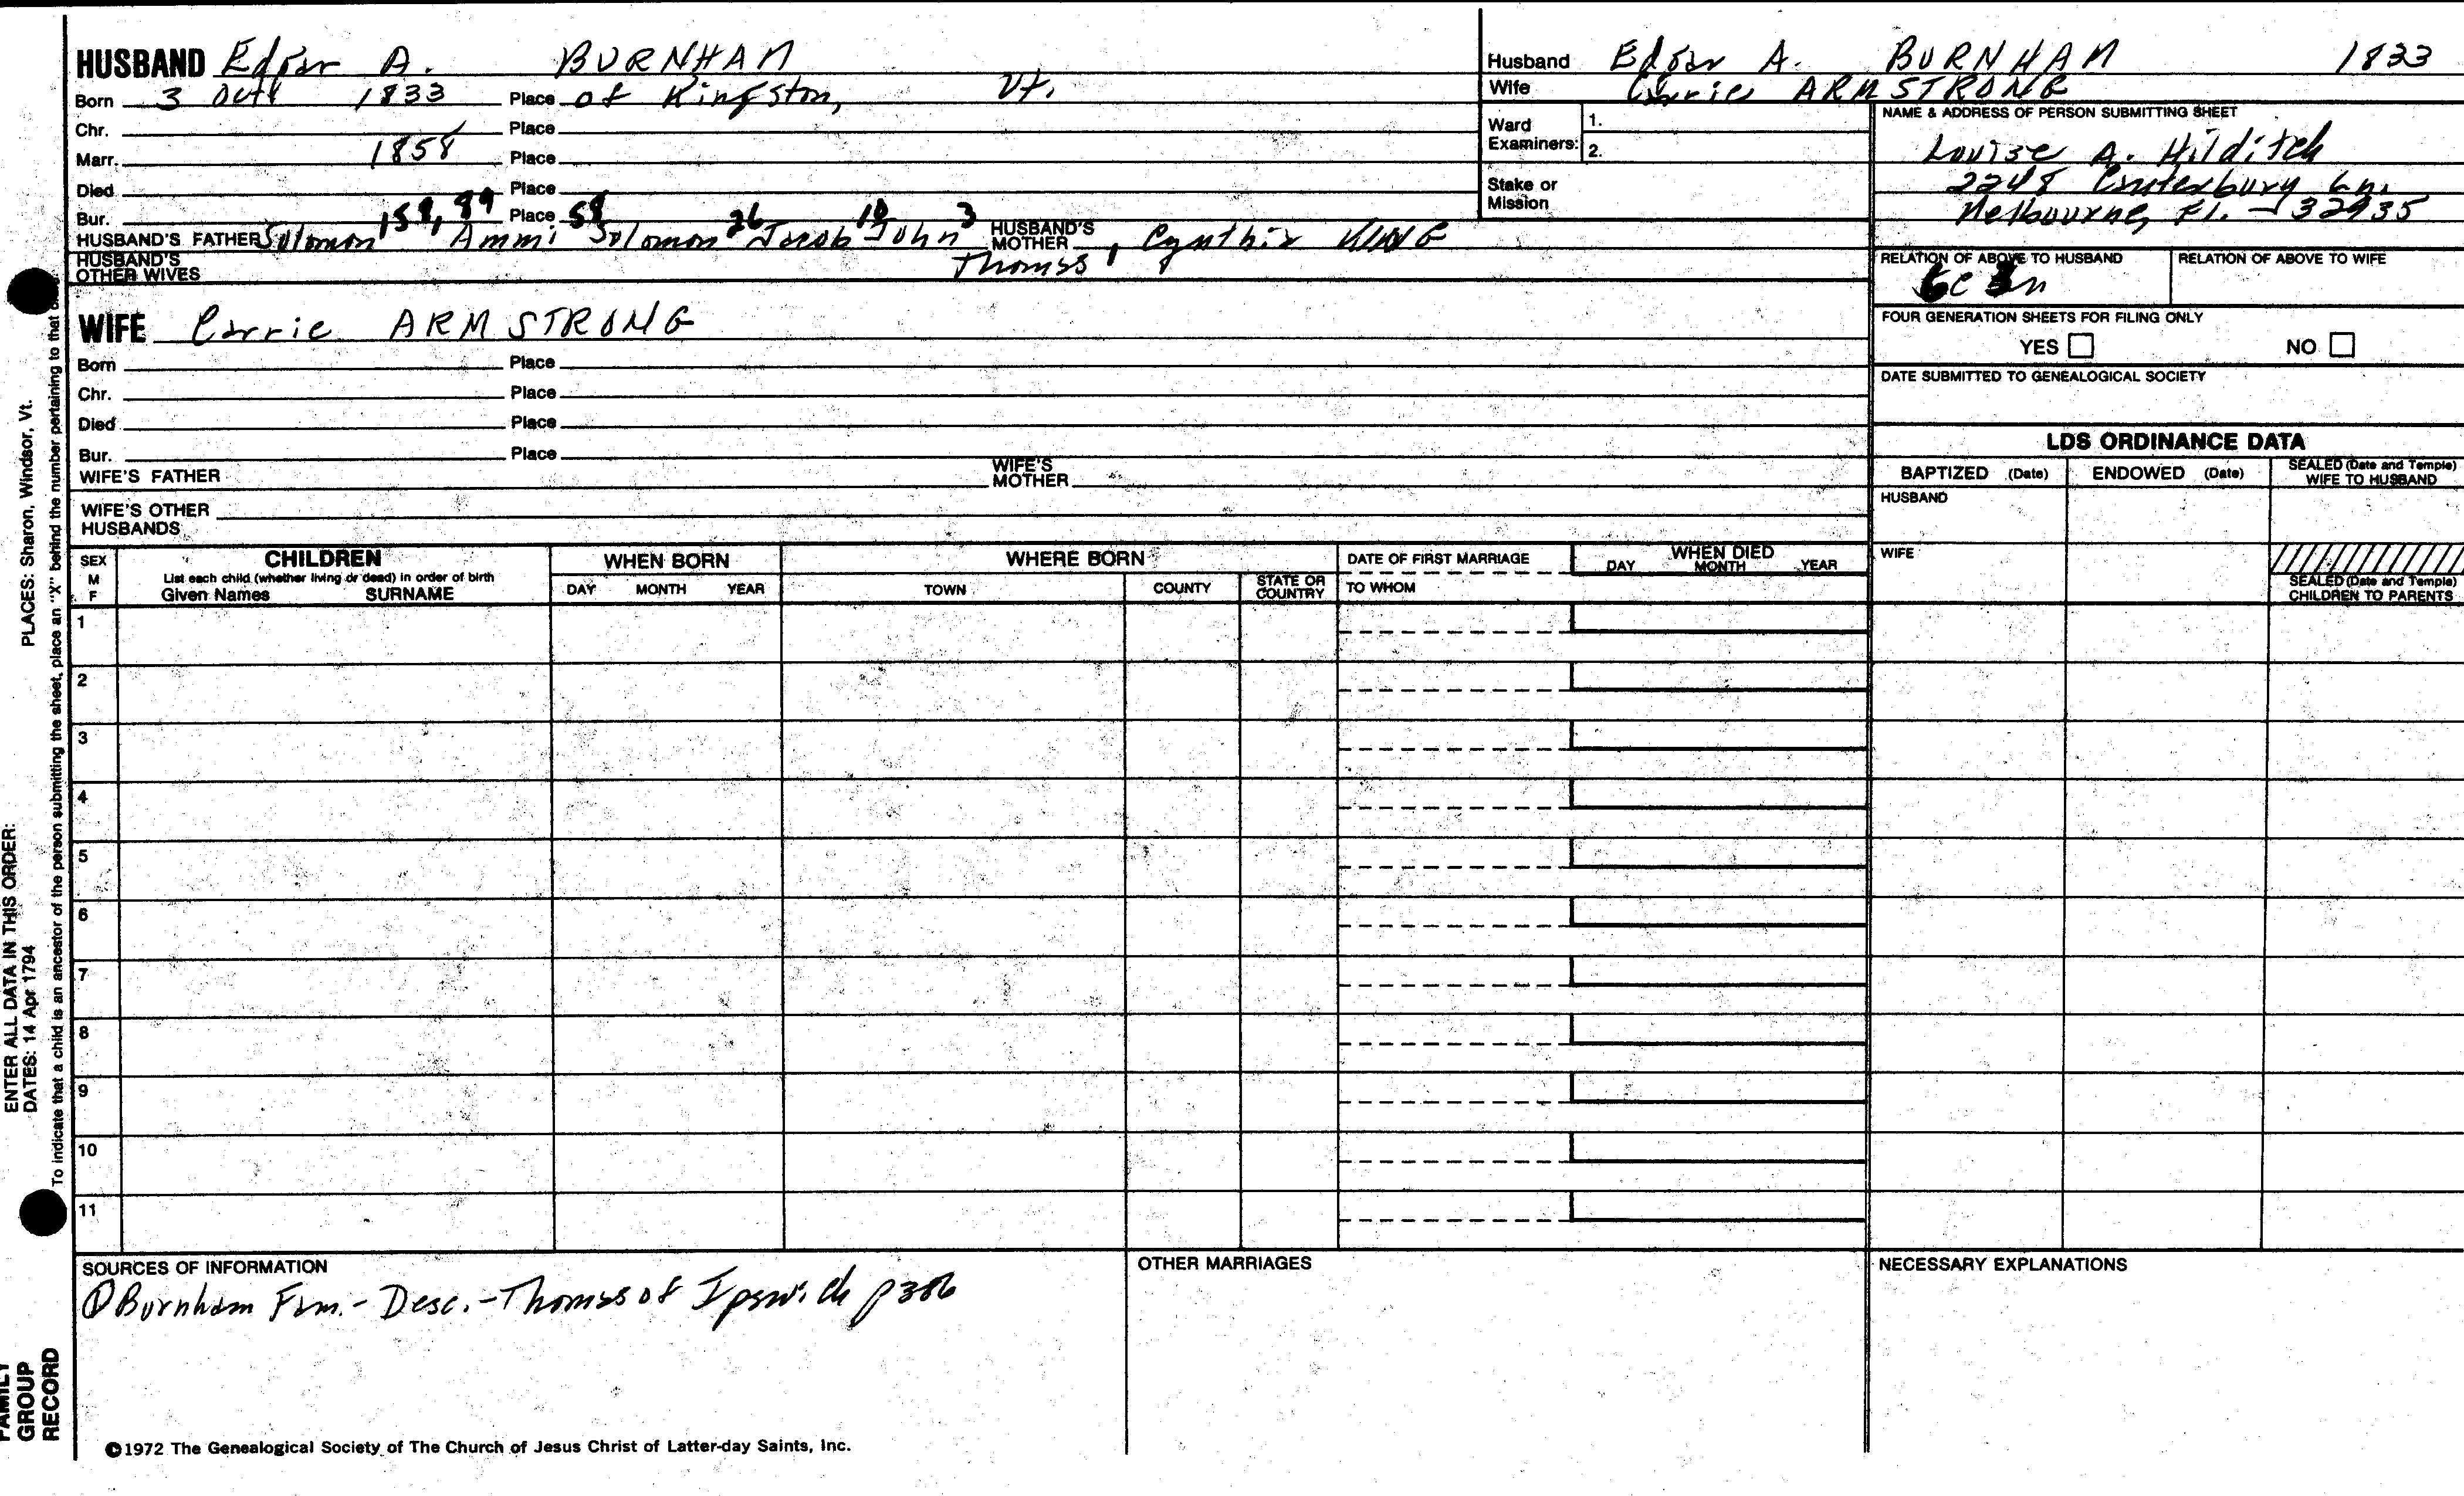 HUSBAND Edgar A. BURNHAM
Born 3 Oct 1833 Place of Kingston, Vt.
Chr. Place
Marr. 1858 Place
Died Place
Bur. Place
158, 89 58 26 10 3
HUSBAND'S FATHER Solomon Ammi Solomon Jacob John HUSBAND'S MOTHER Cynthia KING
Thomas 1
HUSBAND'S OTHER WIVES
WIFE Carrie ARMSTRONG
Born Place
Chr. Place
Died Place
Bur. Place
WIFE'S FATHER WIFE'S MOTHER
WIFE'S OTHER HUSBANDS
Husband Edgar A. BURNHAM 1833
Wife Carrie ARMSTRONG
Ward Examiners: 1.
2.
Stake or Mission
NAME & ADDRESS OF PERSON SUBMITTING SHEET
Louise A. Hilditch
2248 Canterbury Ln.
Melbourne, Fl. - 32935
RELATION OF ABOVE TO HUSBAND RELATION OF ABOVE TO WIFE
FOUR GENERATION SHEETS FOR FILING ONLY
YES NO
DATE SUBMITTED TO GENEALOGICAL SOCIETY
LDS ORDINANCE DATA
BAPTIZED (Date) ENDOWED (Date) SEALED (Date and Temple) WIFE TO HUSBAND
HUSBAND
WIFE
SEALED (Date and Temple) CHILDREN TO PARENTS
SEX M F
CHILDREN
List each child (whether living or dead) in order of birth
Given Names SURNAME
WHEN BORN
DAY MONTH YEAR
WHERE BORN
TOWN COUNTY STATE OR COUNTRY
DATE OF FIRST MARRIAGE
TO WHOM
WHEN DIED
DAY MONTH YEAR
1
2
3
4
5
6
7
8
9
10
11
SOURCES OF INFORMATION
① Burnham Fam. - Desc. - Thomas of Ipswich p 306
OTHER MARRIAGES
NECESSARY EXPLANATIONS
©1972 The Genealogical Society of The Church of Jesus Christ of Latter-day Saints, Inc.
FAMILY GROUP RECORD
ENTER ALL DATA IN THIS ORDER:
DATES: 14 Apr 1794
PLACES: Sharon, Windsor, Vt.
To indicate that a child is an ancestor of the person submitting the sheet, place an "X" behind the number pertaining to that